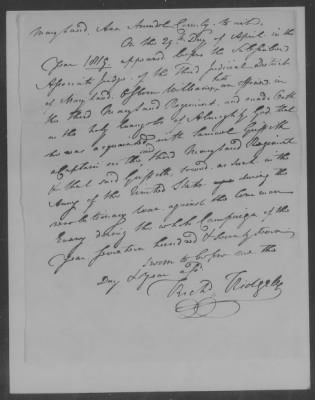 Maryland, Ann Arundel County, to wit,
On the 29th Day of April in the
Year 1815 appeared before the Subscriber
Associate Judge of the Third Judicial District
of Maryland, Osborn Williams, an officer in
the Third Maryland Regiment, and made Oath
on the holy Evangely of Almighty God that
he was acquainted with Samuel Griffith
a Captain in the third Maryland Regiment
& that said Griffith, served as such in the
Army of the United States during the
revolutionary war against the common
Enemy during the whole Campaign of the
Year seventeen hundred & seventy
Sworn to before me the
Day & year afd.
Richd. Ridgely